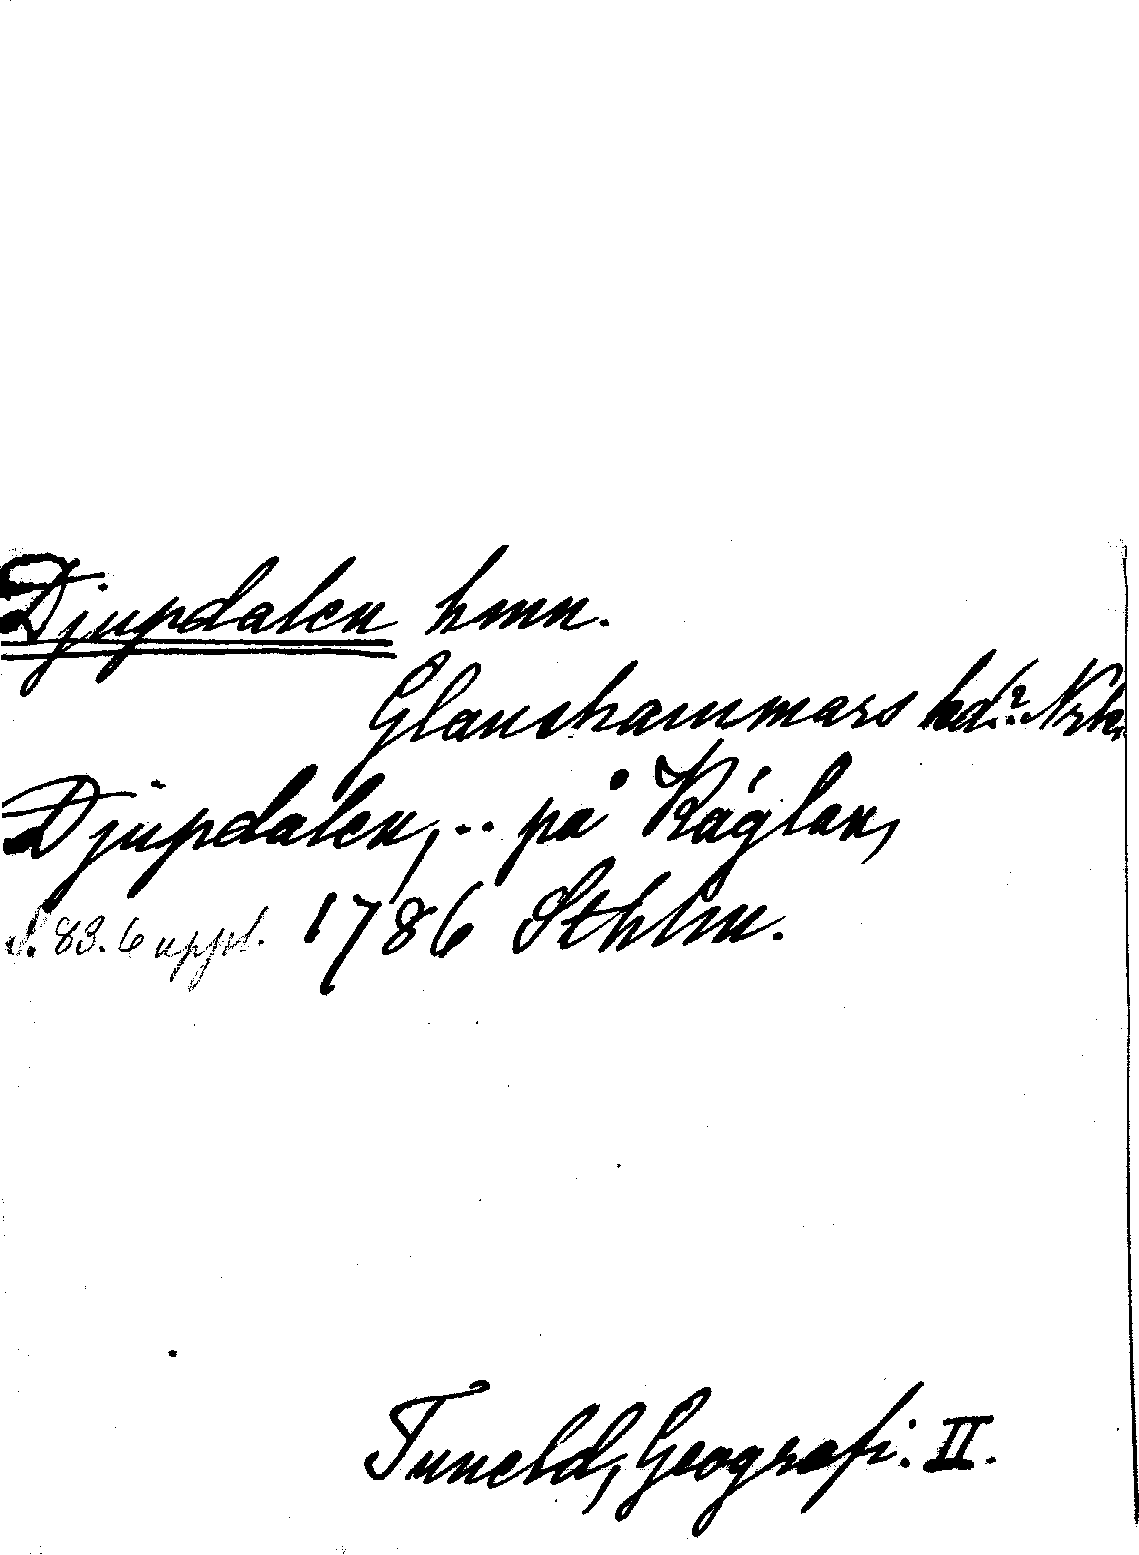 Djupdalen hmn.
Glanshammars hd? Nrke.
Djupdalen, .. på Käglan,
S. 83. 6 uppl. 1786 Sthlm.
Tuneld, Geografi. II.